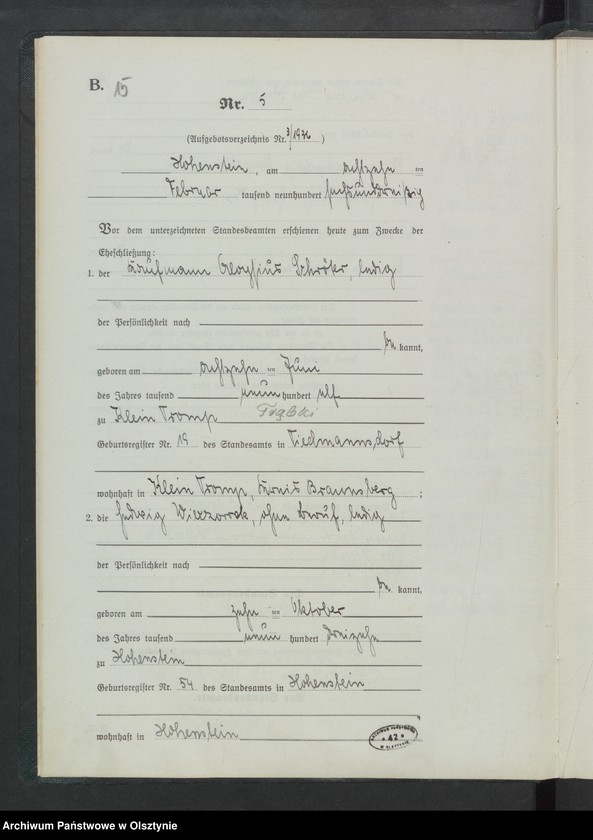 B. 15
Nr. 5
(Aufgebotsverzeichnis Nr. 3/1936)
Hohenstein, am achtzehn ten
Februar tausend neunhundert sechsunddreißig
Vor dem unterzeichneten Standesbeamten erschienen heute zum Zwecke der
Eheschließung:
1. der Kaufmann Aloysius Schröter, ledig
der Persönlichkeit nach
be kannt,
geboren am achtzehn ten Juni
des Jahres tausend neun hundert elf
zu Klein Tromp Trąbki
Geburtsregister Nr. 18 des Standesamts in Tiedmannsdorf
wohnhaft in Klein Tromp, Kreis Braunsberg ;
2. die Hedwig Wieczorrek, ohne Beruf, ledig
der Persönlichkeit nach
be kannt,
geboren am zehn ten Oktober
des Jahres tausend neun hundert dreizehn
zu Hohenstein
Geburtsregister Nr. 54 des Standesamts in Hohenstein
wohnhaft in Hohenstein
ARCHIWUM PAŃSTWOWE
* 42 *
W OLSZTYNIE
Archiwum Państwowe w Olsztynie